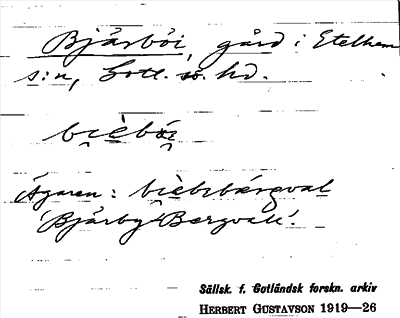 Bjärböi, gård i Etelhem
s:n, Gotl. sö. hd.
Ägaren:
'Bjärby Bergvall'.
Sällsk. f. Gotländsk forskn. arkiv
HERBERT GUSTAVSON 1919—26